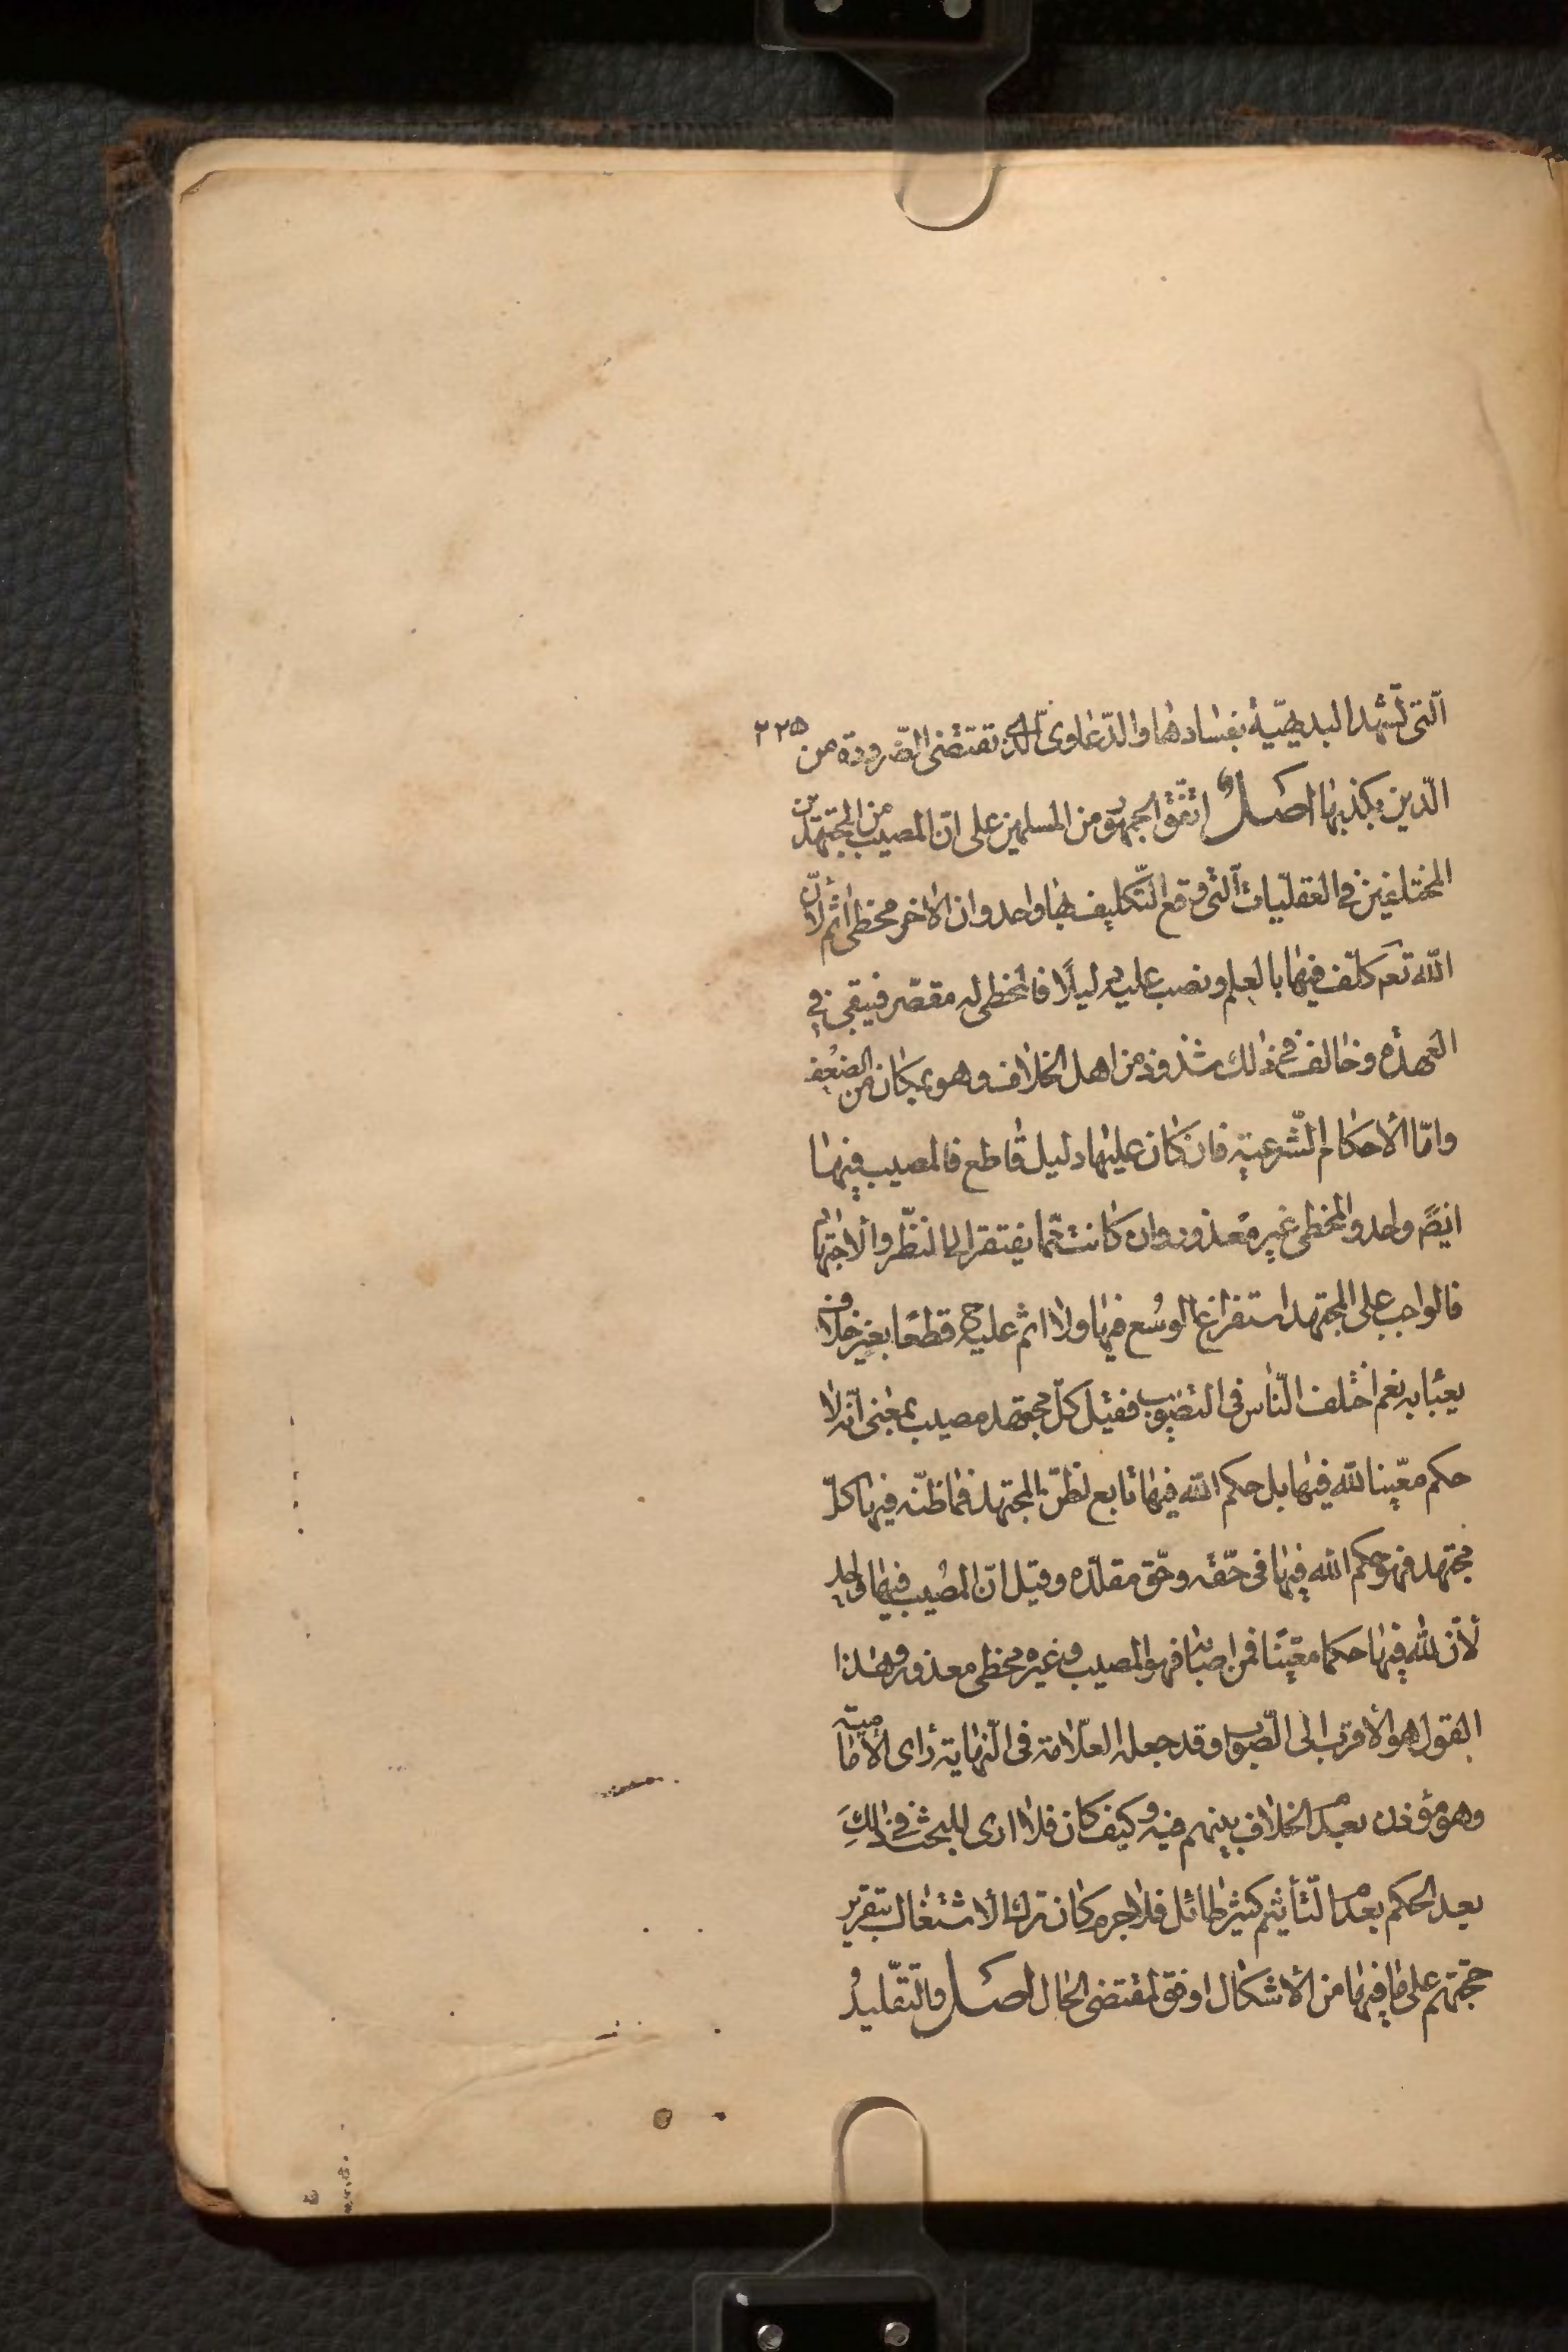 الّتی تشهد البدیهیّة بفسادها والدّعاوی الّتی تقتضی الضّرورة من ٢٢٥
الدّین بکذبها اصل اتّفق الجمهور من المسلمین علی انّ المصیب من المجتهدین
المختلفین فی العقلیّات الّتی وقع التّکلیف بها واحد وان الاخر مخطئ اثم لانّ
اللّه تعم کلّف فیها بالعلم ونصب علیه دلیلًا فالمخطئ له مقصّر فیبقی فی
العهدة وخالف فی ذلك شذوذ من اهل الخلاف وهو بمکان من الضعف
وامّا الاحکام الشّرعیة فان کان علیها دلیل قاطع فالمصیب فیها
ایضً واحد والمخطئ غیر معذور وان کانت ممّا یفتقر الی النّظر والاجتهاد
فالواجب علی المجتهد استفراغ الوُسع فیها ولا اثم علیه ح قطعًا بغیر خلاف
یعبأ به نعم اختلف النّاس فی التصویب فقیل کلّ مجتهد مصیب بمعنی انّه لا
حکم معیّنا للّه فیها بل حکم اللّه فیها تابع لظنّ المجتهد فما ظنّه فیها کلّ
مجتهد فهو حکم اللّه فیها فی حقّه وحقّ مقلّده وقیل انّ المصیب فیها واحد
لانّ للّه فیها حکما معیّنًا فمن اصابه فهو المصیب وغیره مخطئ معذور وهذا
القول هو الاقرب الی الصّواب وقد جعله العلّامة فی النّهایة رای الامامیة
وهو مؤذن بعدم الخلاف بینهم فیه وکیف کان فلا اری للبحث فی ذلكَ
بعد الحکم بعدم التّأثیم کثیر طائل فلا جرم کان ترك الاشتغال بتقریر
حجّتهم علی ما فیها من الاشکال اوفق لمقتضی الحال اصل والتّقلیدُ